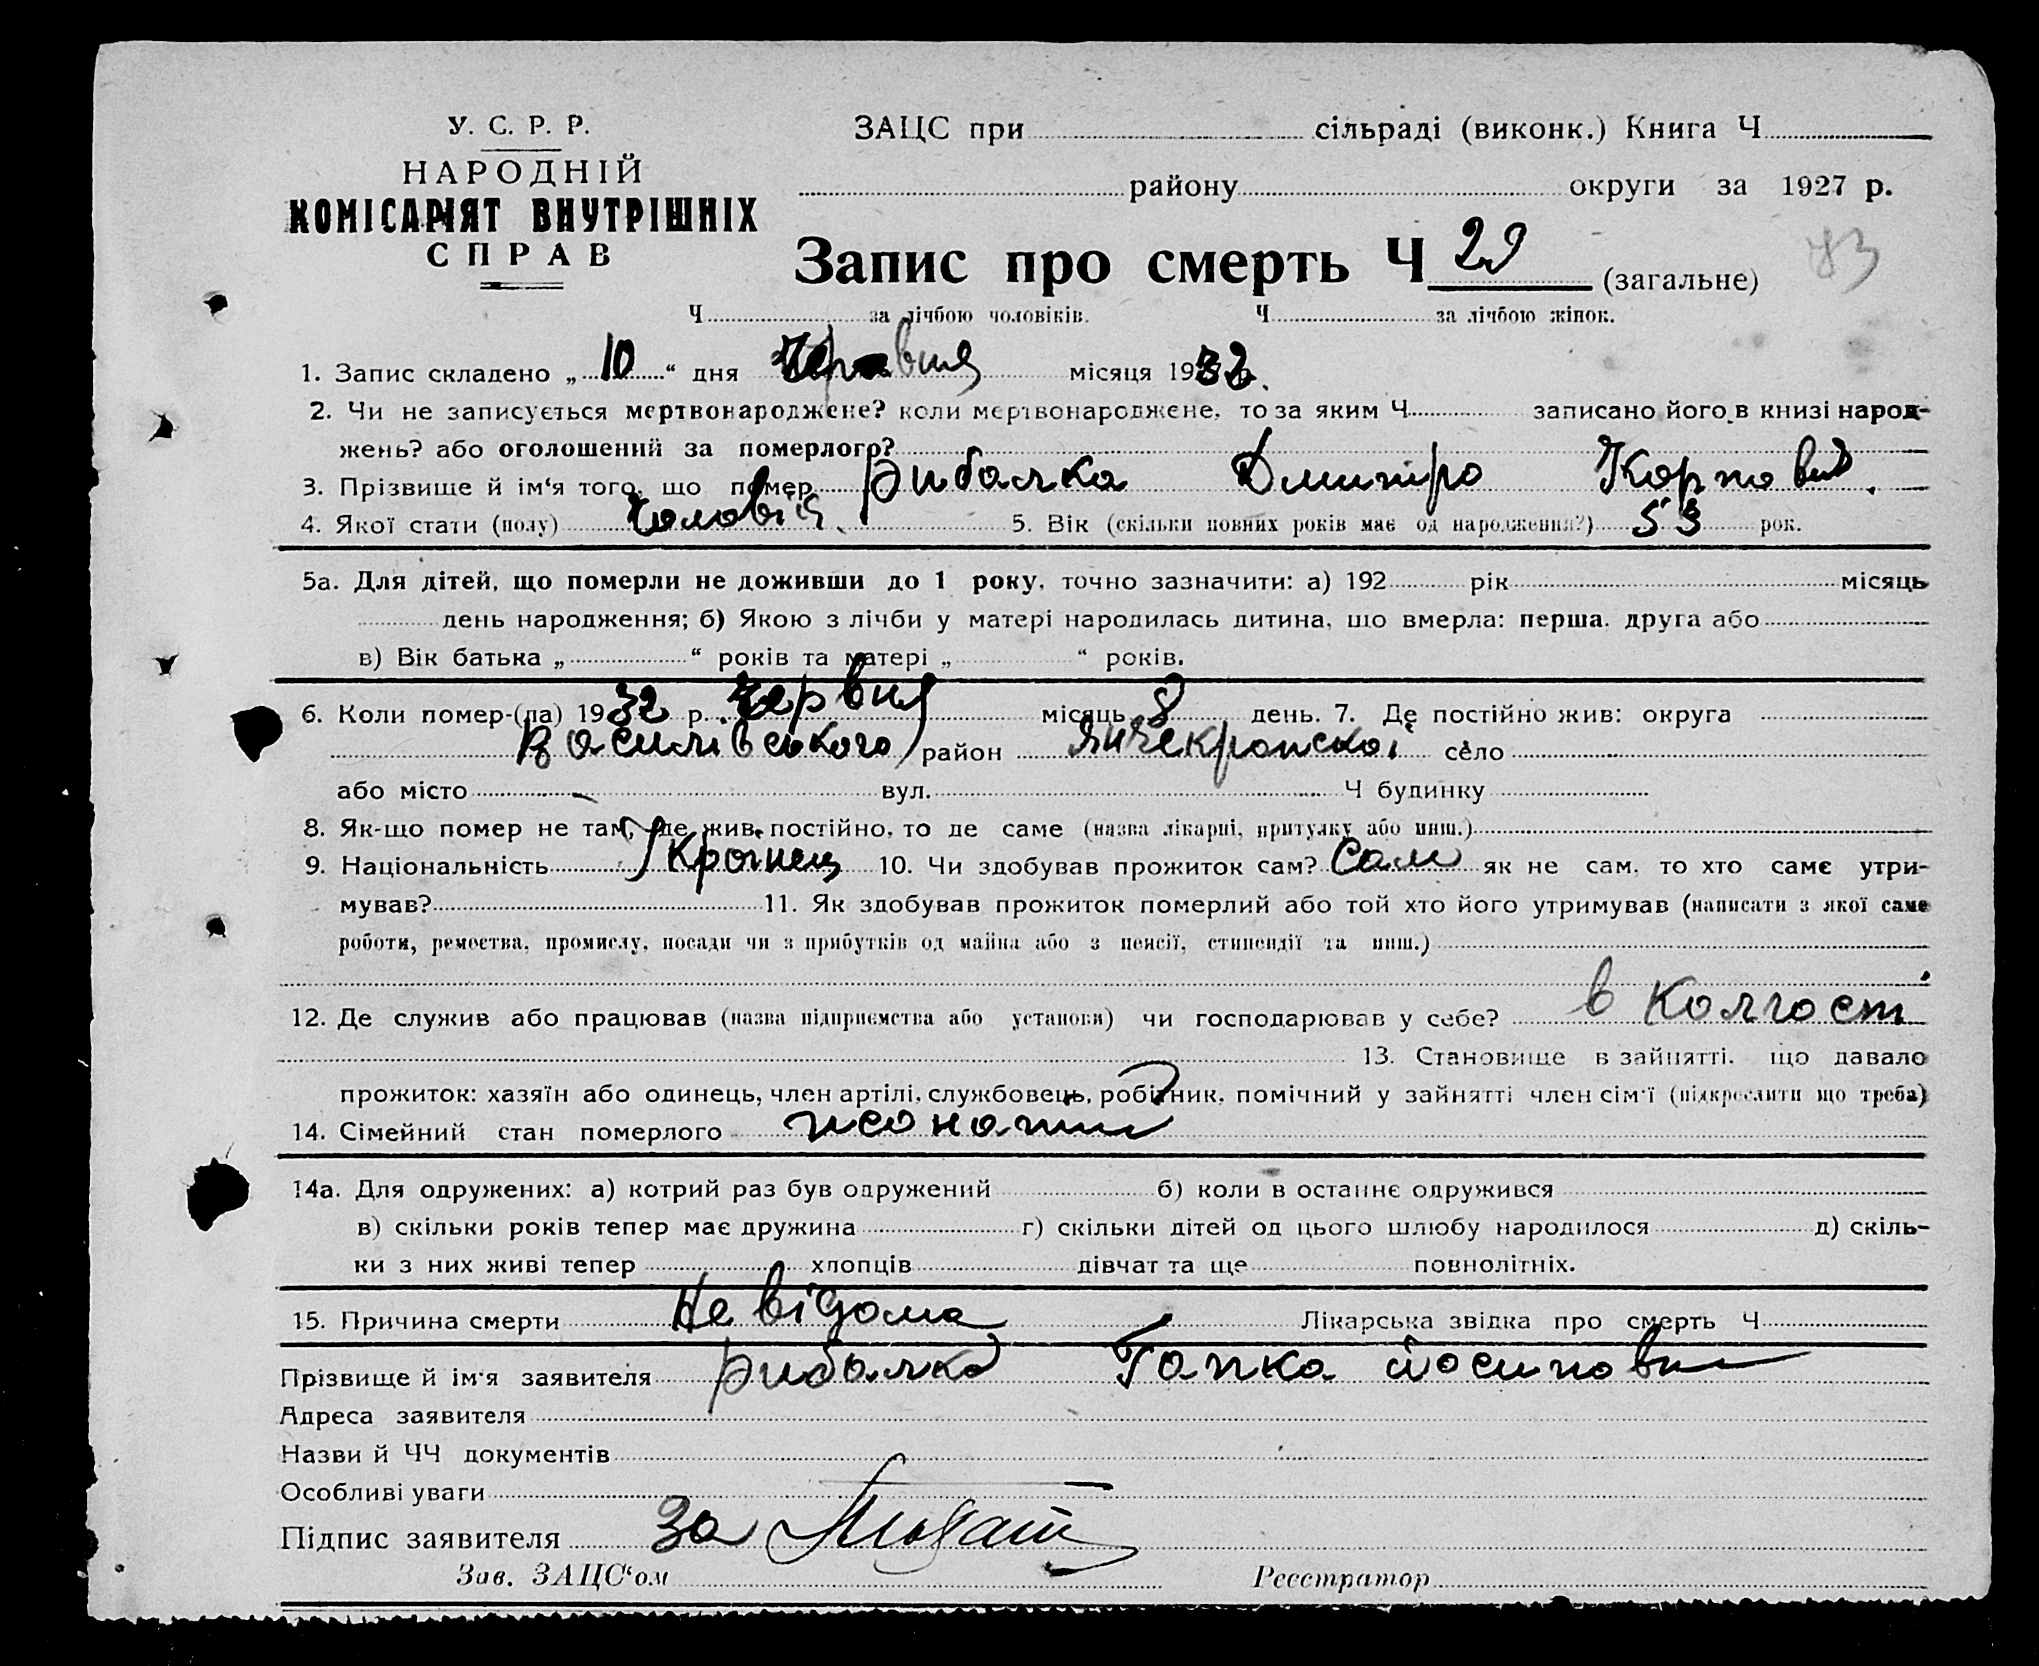 У. С. Р. Р.
НАРОДНІЙ
КОМІСАРІЯТ ВНУТРІШНІХ
СПРАВ
ЗАЦС при сільраді (виконк.) Книга Ч
району округи за 1927 р.
Запис про смерть Ч 29 (загальне)
Ч за лічбою чоловіків. Ч за лічбою жінок.
1. Запис складено „ 10 “ дня червня місяця 1932 р.
2. Чи не записується мертвонароджене? коли мертвонароджене, то за яким Ч записано його в книзі народ-
жень? або оголошений за померлого?
3. Прізвище й ім‘я того, що помер Рибалка Дмитро Карпович.
4. Якої стати (полу) Чоловіч. 5. Вік (скільки повних років має од народження?) 53 рок.
5а. Для дітей, що померли не доживши до 1 року, точно зазначити: а) 192 рік місяць
день народження; б) Якою з лічби у матері народилась дитина, що вмерла: перша, друга або
в) Вік батька „ “ років та матері „ “ років.
6. Коли помер-(ла) 1932 р. червня місяць 8 день. 7. Де постійно жив: округа
Василівського район Янчекракської село
або місто вул. Ч будинку
8. Як-що помер не там, де жив постійно, то де саме (назва лікарні, притулку або инш.)
9. Національність Украінец 10. Чи здобував прожиток сам? Сам як не сам, то хто саме утри-
мував? 11. Як здобував прожиток померлий або той хто його утримував (написати з якої саме
роботи, ремества, промислу, посади чи з прибутків од майна або з пенсії, стипендії та инш.)
12. Де служив або працював (назва підприємства або установи) чи господарював у себе? в колгосп
13. Становище в зайнятті, що давало
прожиток: хазяїн або одинець, член артілі, службовець, робітник, помічний у зайнятті член сім'ї (підкреслити що треба)
14. Сімейний стан померлого жонатий
14а. Для одружених: а) котрий раз був одружений б) коли в останнє одружився
в) скільки років тепер має дружина г) скільки дітей од цього шлюбу народилося д) скіль-
ки з них живі тепер хлопців дівчат та ще повнолітніх.
15. Причина смерти Не відома Лікарська звідка про смерть Ч
Прізвище й ім'я заявителя Рибалка Гапка
Адреса заявителя
Назви й ЧЧ документів
Особливі уваги
Підпис заявителя За
Зав. ЗАЦС‘ом Реєстратор